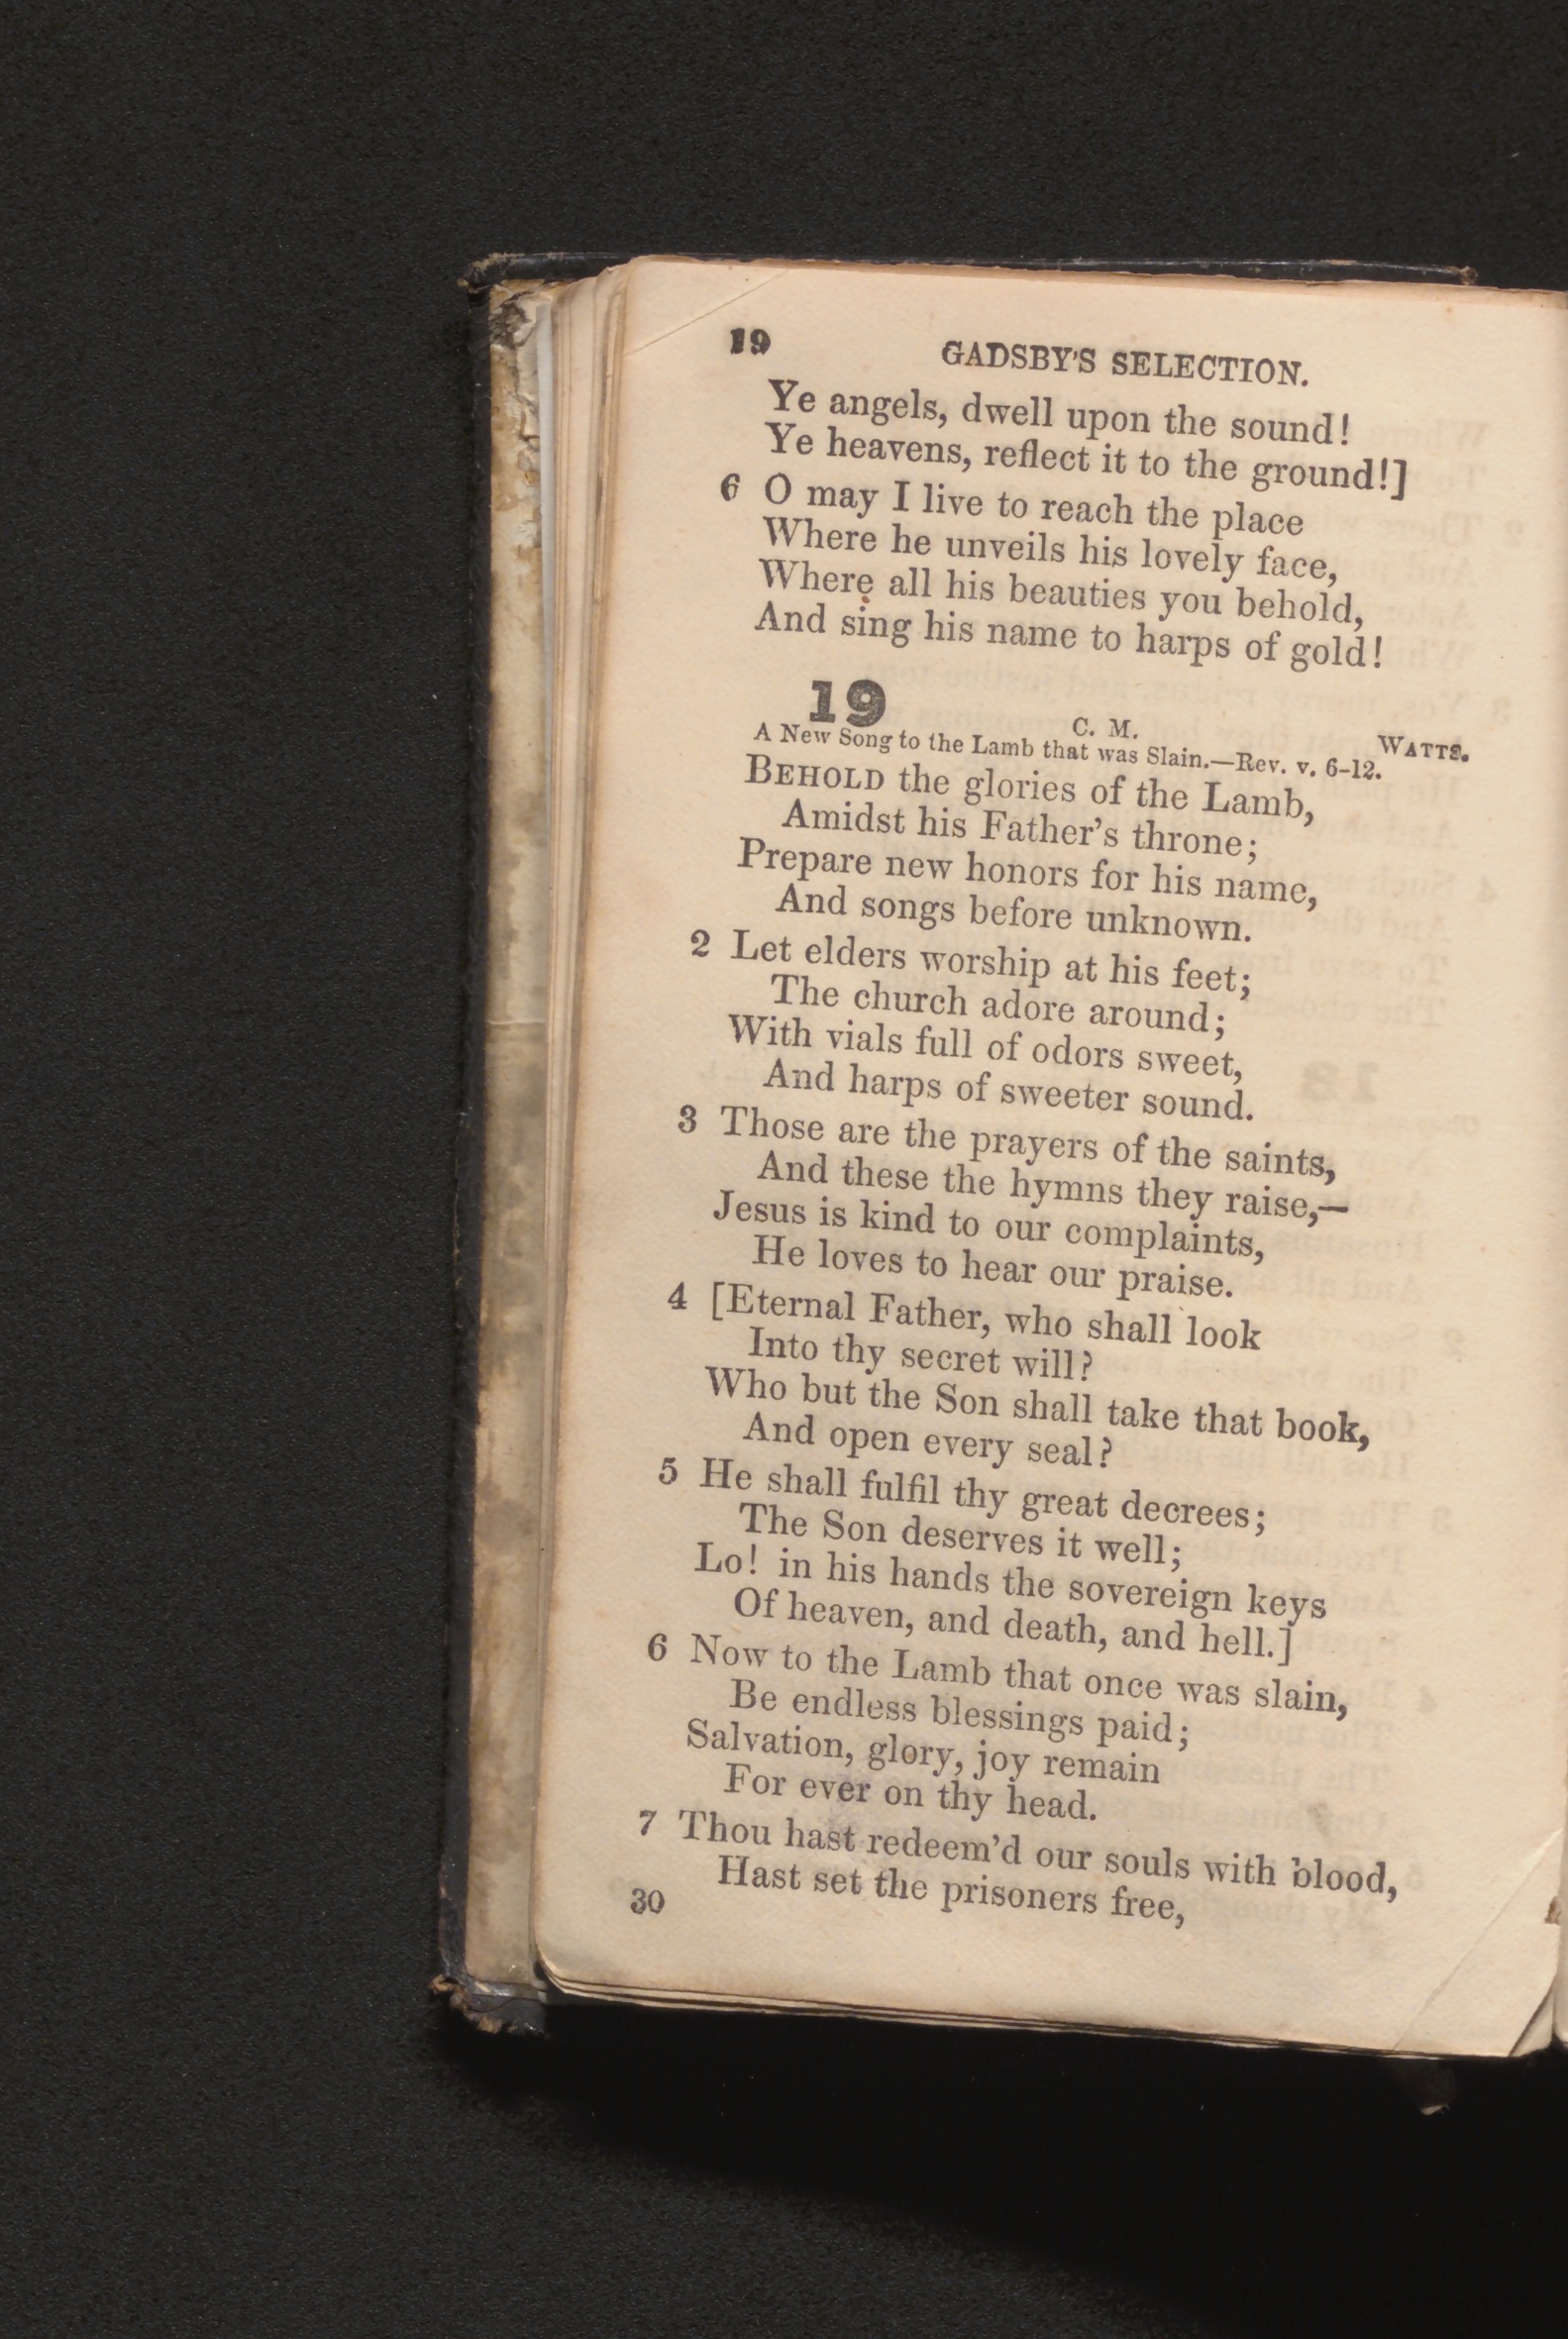 19 GADSBY'S SELECTION.
Ye angels, dwell upon the sound!
Ye heavens, reflect it to the ground!]
6 O may I live to reach the place
Where he unveils his lovely face,
Where all his beauties you behold,
And sing his name to harps of gold!
19 C. M. WATTS.
A New Song to the Lamb that was Slain.—Rev. v. 6-12.
BEHOLD the glories of the Lamb,
Amidst his Father's throne;
Prepare new honors for his name,
And songs before unknown.
2 Let elders worship at his feet;
The church adore around;
With vials full of odors sweet,
And harps of sweeter sound.
3 Those are the prayers of the saints,
And these the hymns they raise,—
Jesus is kind to our complaints,
He loves to hear our praise.
4 [Eternal Father, who shall look
Into thy secret will?
Who but the Son shall take that book,
And open every seal?
5 He shall fulfil thy great decrees;
The Son deserves it well;
Lo! in his hands the sovereign keys
Of heaven, and death, and hell.]
6 Now to the Lamb that once was slain,
Be endless blessings paid;
Salvation, glory, joy remain
For ever on thy head.
7 Thou hast redeem'd our souls with blood,
Hast set the prisoners free,
30